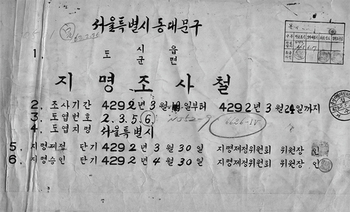 서울특별시 동대문구
1. 도 시 읍
군 면
지명조사철
2. 조사기간 4292년 3월 일부터 4292년 3월 24일까지
3. 도엽번호 2.3.5.6
4. 도엽지명 서울특별시
5. 지명제정 단기 4292년 3월 30일 지명제정위원회 위원장 인
6. 지명승인 단기 4292년 4월 30일 지명제정위원회 위원장 인